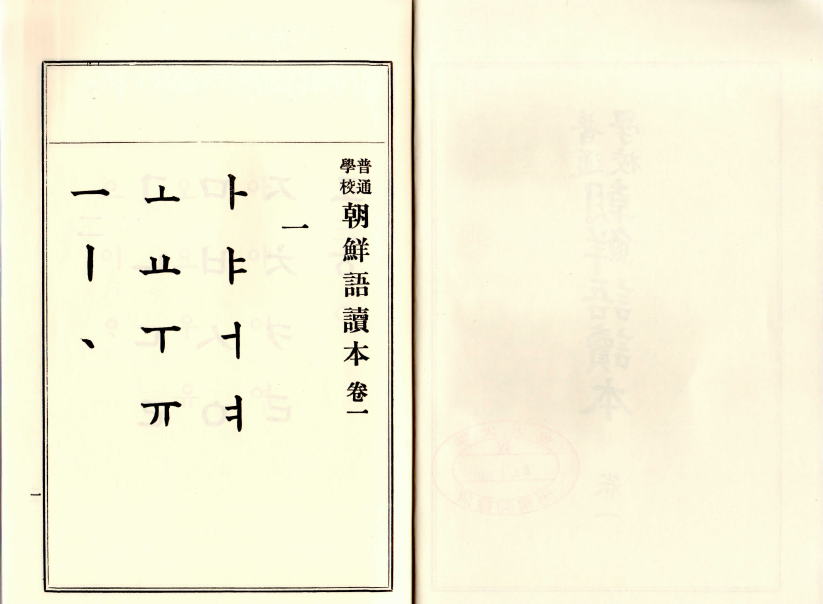 普通學校 朝鮮語讀本 卷一
一
ㅏ ㅑ ㅓ ㅕ
ㅗ ㅛ ㅜ ㅠ
ㅡ ㅣ 、
一